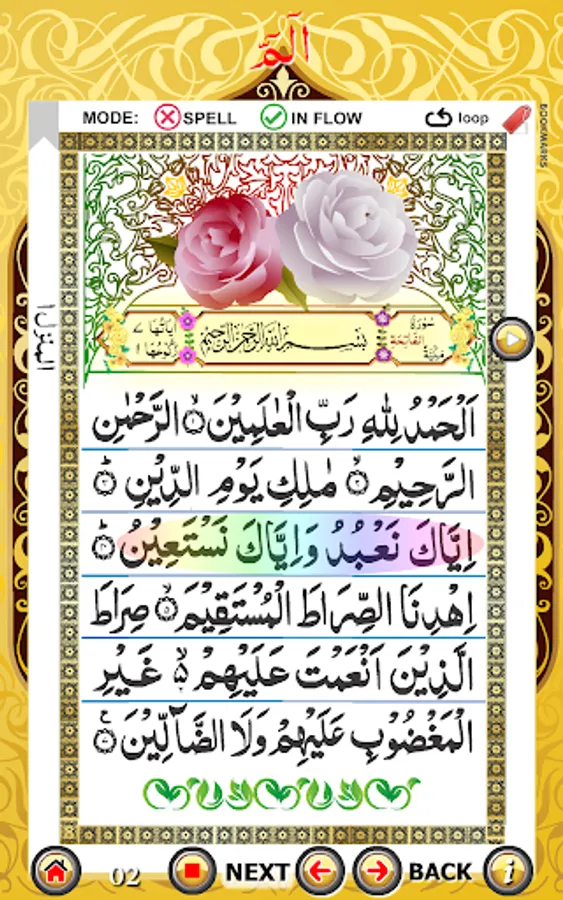 الٓمّٓ
MODE: SPELL IN FLOW loop
BOOKMARKS
سُوْرَةُ الْفَاتِحَة
بِسْمِ اللهِ الرَّحْمٰنِ الرَّحِيْمِ
اٰيَاتُهَا ٧
رُكُوْعُهَا ١
اَلْحَمْدُ لِلّٰهِ رَبِّ الْعٰلَمِيْنَ ۙ﴿۱﴾ الرَّحْمٰنِ
الرَّحِيْمِ ۙ﴿۲﴾ مٰلِكِ يَوْمِ الدِّيْنِ ﴿۳﴾ؕ
اِيَّاكَ نَعْبُدُ وَاِيَّاكَ نَسْتَعِيْنُ ﴿۴﴾ؕ
اِهْدِنَا الصِّرَاطَ الْمُسْتَقِيْمَ ۙ﴿۵﴾ صِرَاطَ
الَّذِيْنَ اَنْعَمْتَ عَلَيْهِمْ ۙ۬ غَيْرِ
الْمَغْضُوْبِ عَلَيْهِمْ وَلَا الضَّآلِّيْنَ
02 NEXT BACK i